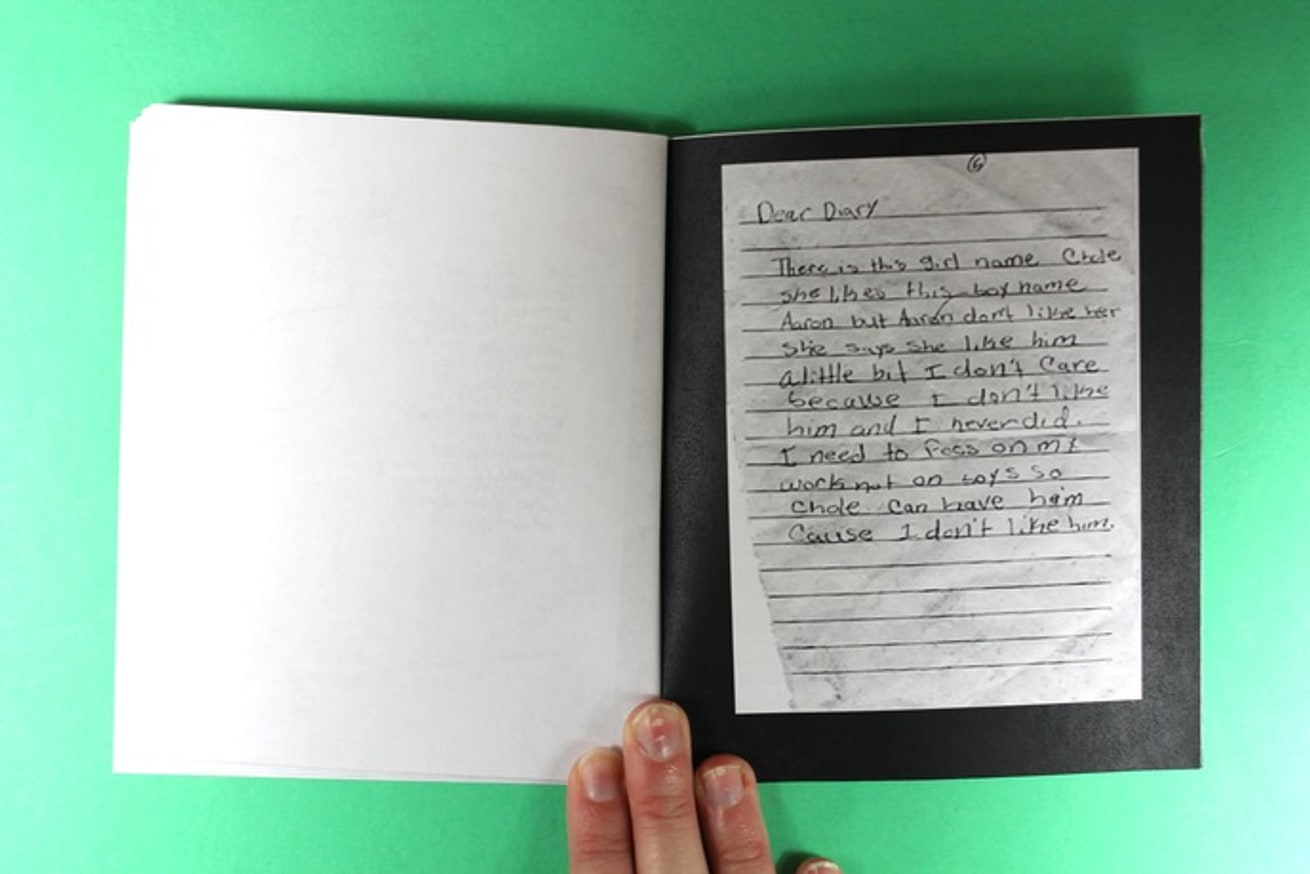 Dear Diary
There is this girl name Chole
she likes this boy name
Aaron but Aaron don't like her
she says she like him
alittle bit I don't Care
because I don't like
him and I never did.
I need to focs on my
work not on boys so
Chole Can have him
Cause I don't like him.